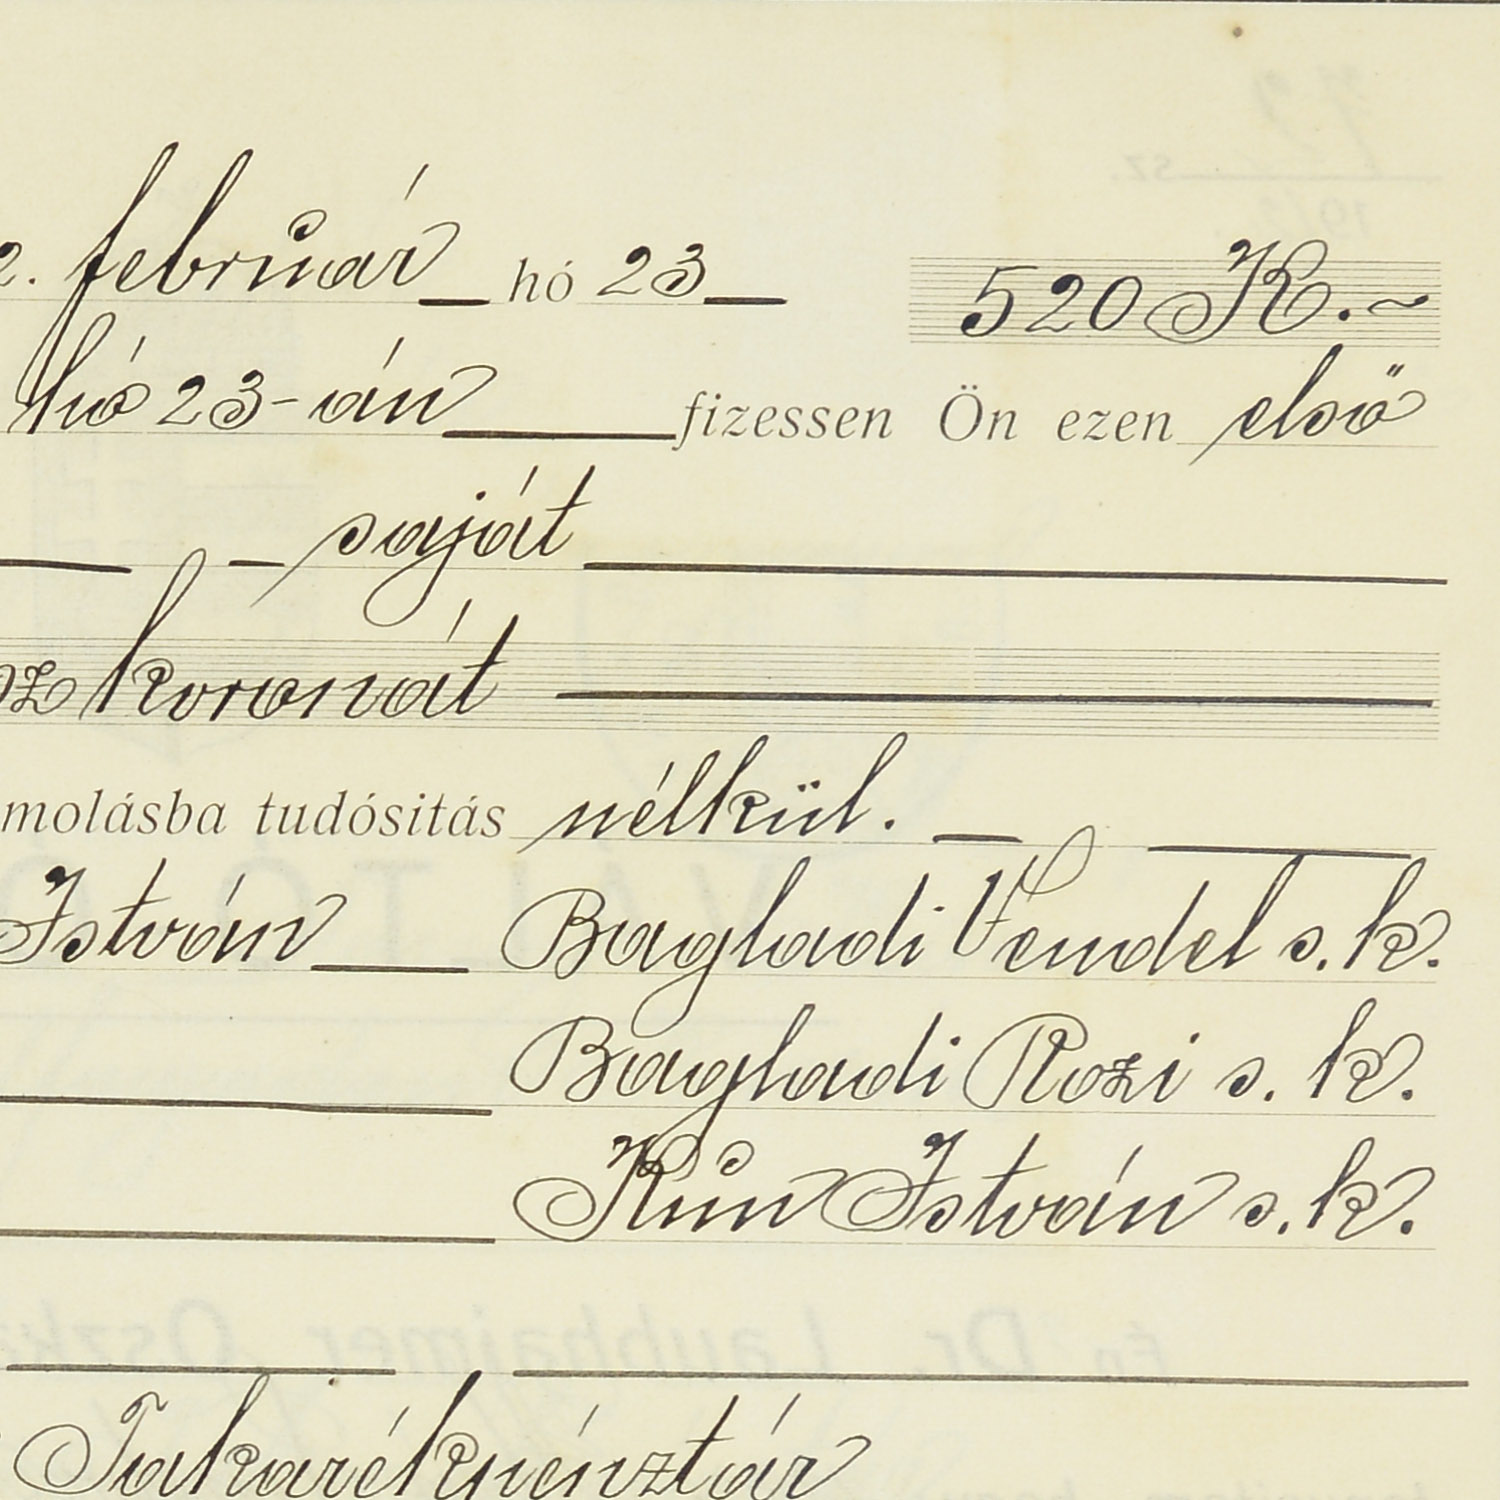 2. február hó 23 520 K.~
hó 23-án fizessen Ön ezen első
saját
koronát
molásba tudósitás nélkül.
István Bagladi Vendel s. k.
Bagladi Rozi s. k.
Kun István s. k.
Takarékpénztár